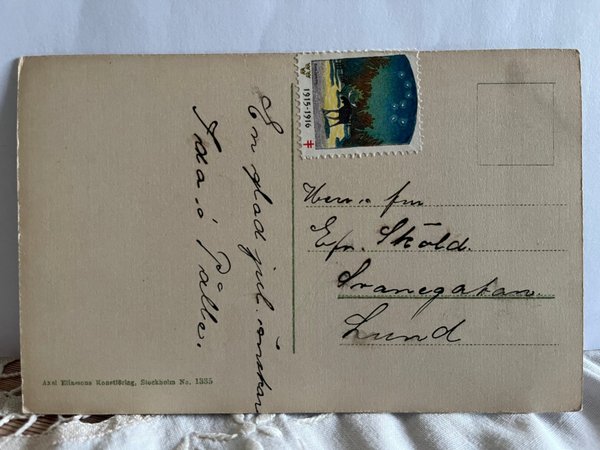 En glad jul. önskar
Ida o Pålle.
1915-1916
Herr. o fru
Efr. Sköld.
Svanegatan.
Lund
Axel Eliassons Konstförlag, Stockholm No. 1355